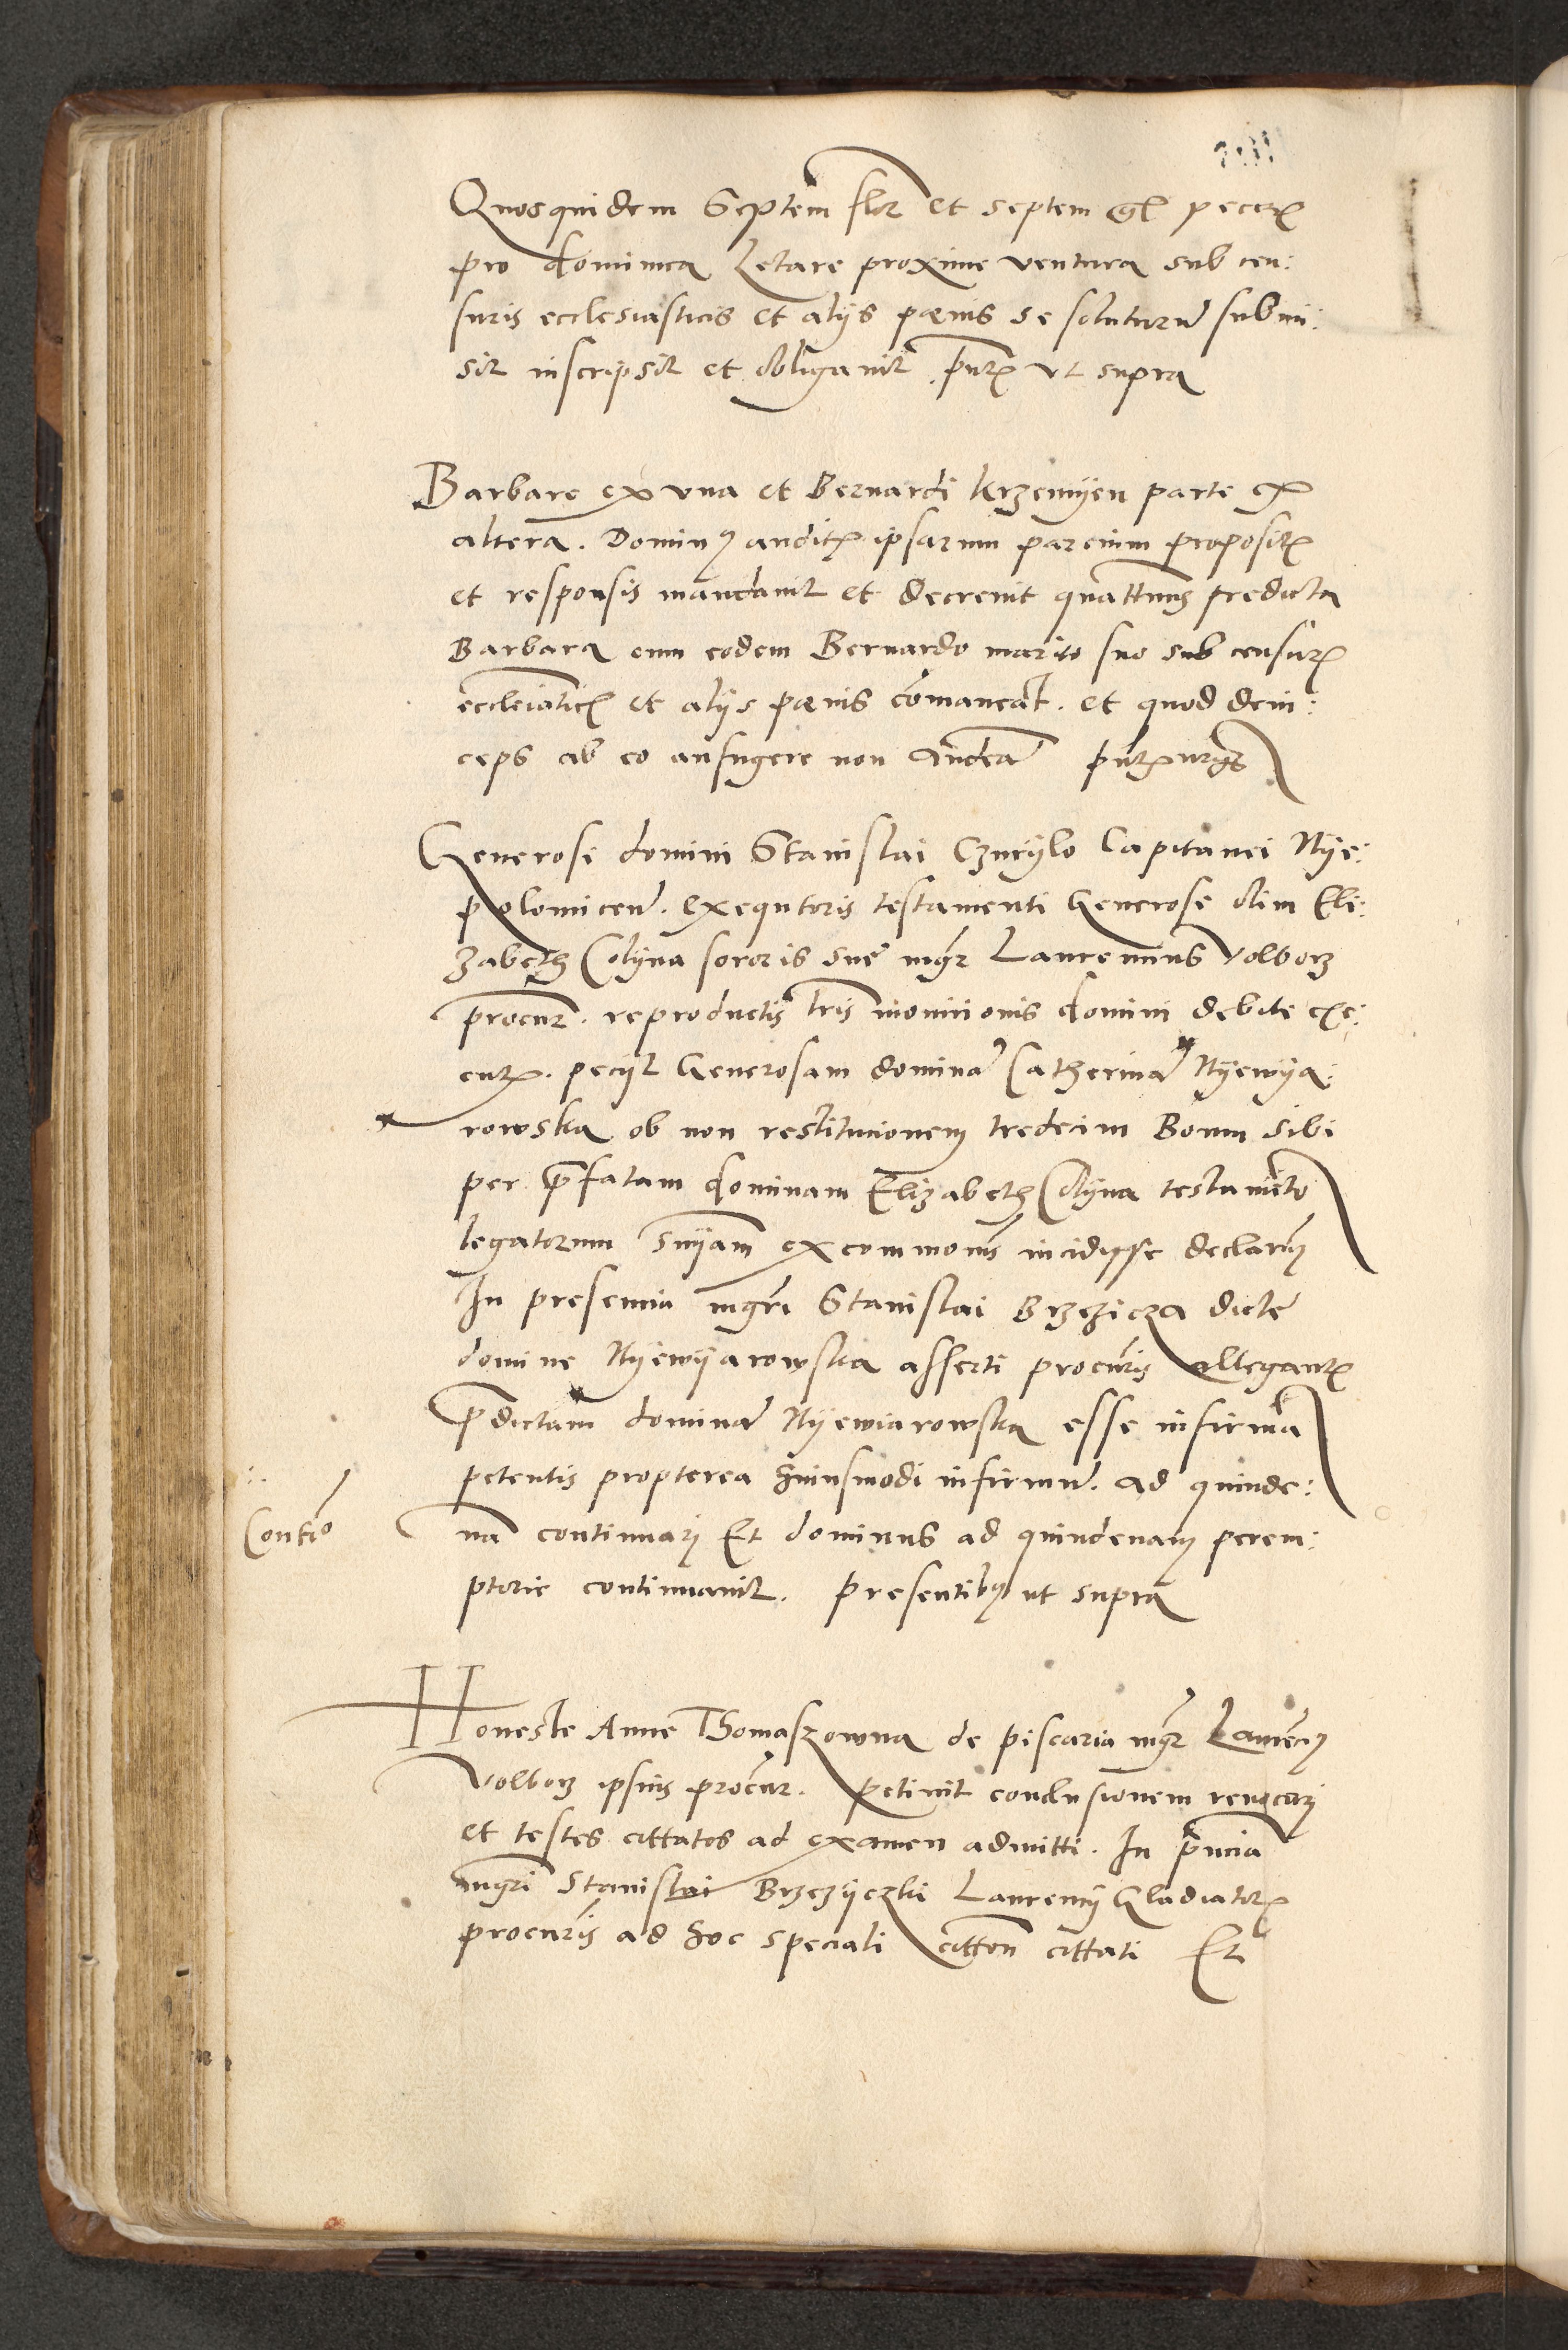 Quosquidem Septem flor et septem gl pecer
pro dominica Letare proxime ventura sub cen:
suris ecclesiasticis et alÿs paenis se soluturum submi:
sit inscripsit et obligavit pntibus vt supra
Barbare ex vna et Bernardi krzemÿen parte ex
altera. Dominus auditis ipsarum parcium propositis
et responsis mandavit et decrevit quattenus predicta
Barbara cum eodem Bernardo marito suo sub censuris
eccleiasticis et alÿs paenis comaneat. et quod dein:
ceps ab eo aufugere non audeat pntibus
Generosi domini Stanislai Czurÿlo Capitanei Nÿe:
polomicen. exequtoris testamenti Generose olim Eli:
zabeth Colÿna sororis sue mgr Laurencius Volborz
procur. reproductis lris monicionis domini debite exe:
cutis. peciit Generosam dominam Catherinam Nÿewÿa:
rowska ob non restitucionem tredecim Boum sibi
per prefatam dominam Elizabeth Colÿna testamento
legatorum sniam excommonis incidisse declarari
In presencia mgri Stanislai Brzezicza dicte
domine Nÿewÿarowska asserti procuris allegantis
predictam dominam Nÿewiarowska esse infirmam
petentis propterea huiusmodi infirmit. ad quinde:
Contio
nam continuari Et dominus ad quindenam perem:
ptorie continuavit. presentibus ut supra
Honeste Anne Thomaszowna de piscaria mgr Laurencius
Volborz ipsius procur. petivit conclusionem revocari
et testes cittatos ad examen admitti. In pncia
mgri Stanislai Brzezÿczki Laurencÿ Gladiatoris
procuris ad hoc speciali citton cittati Et